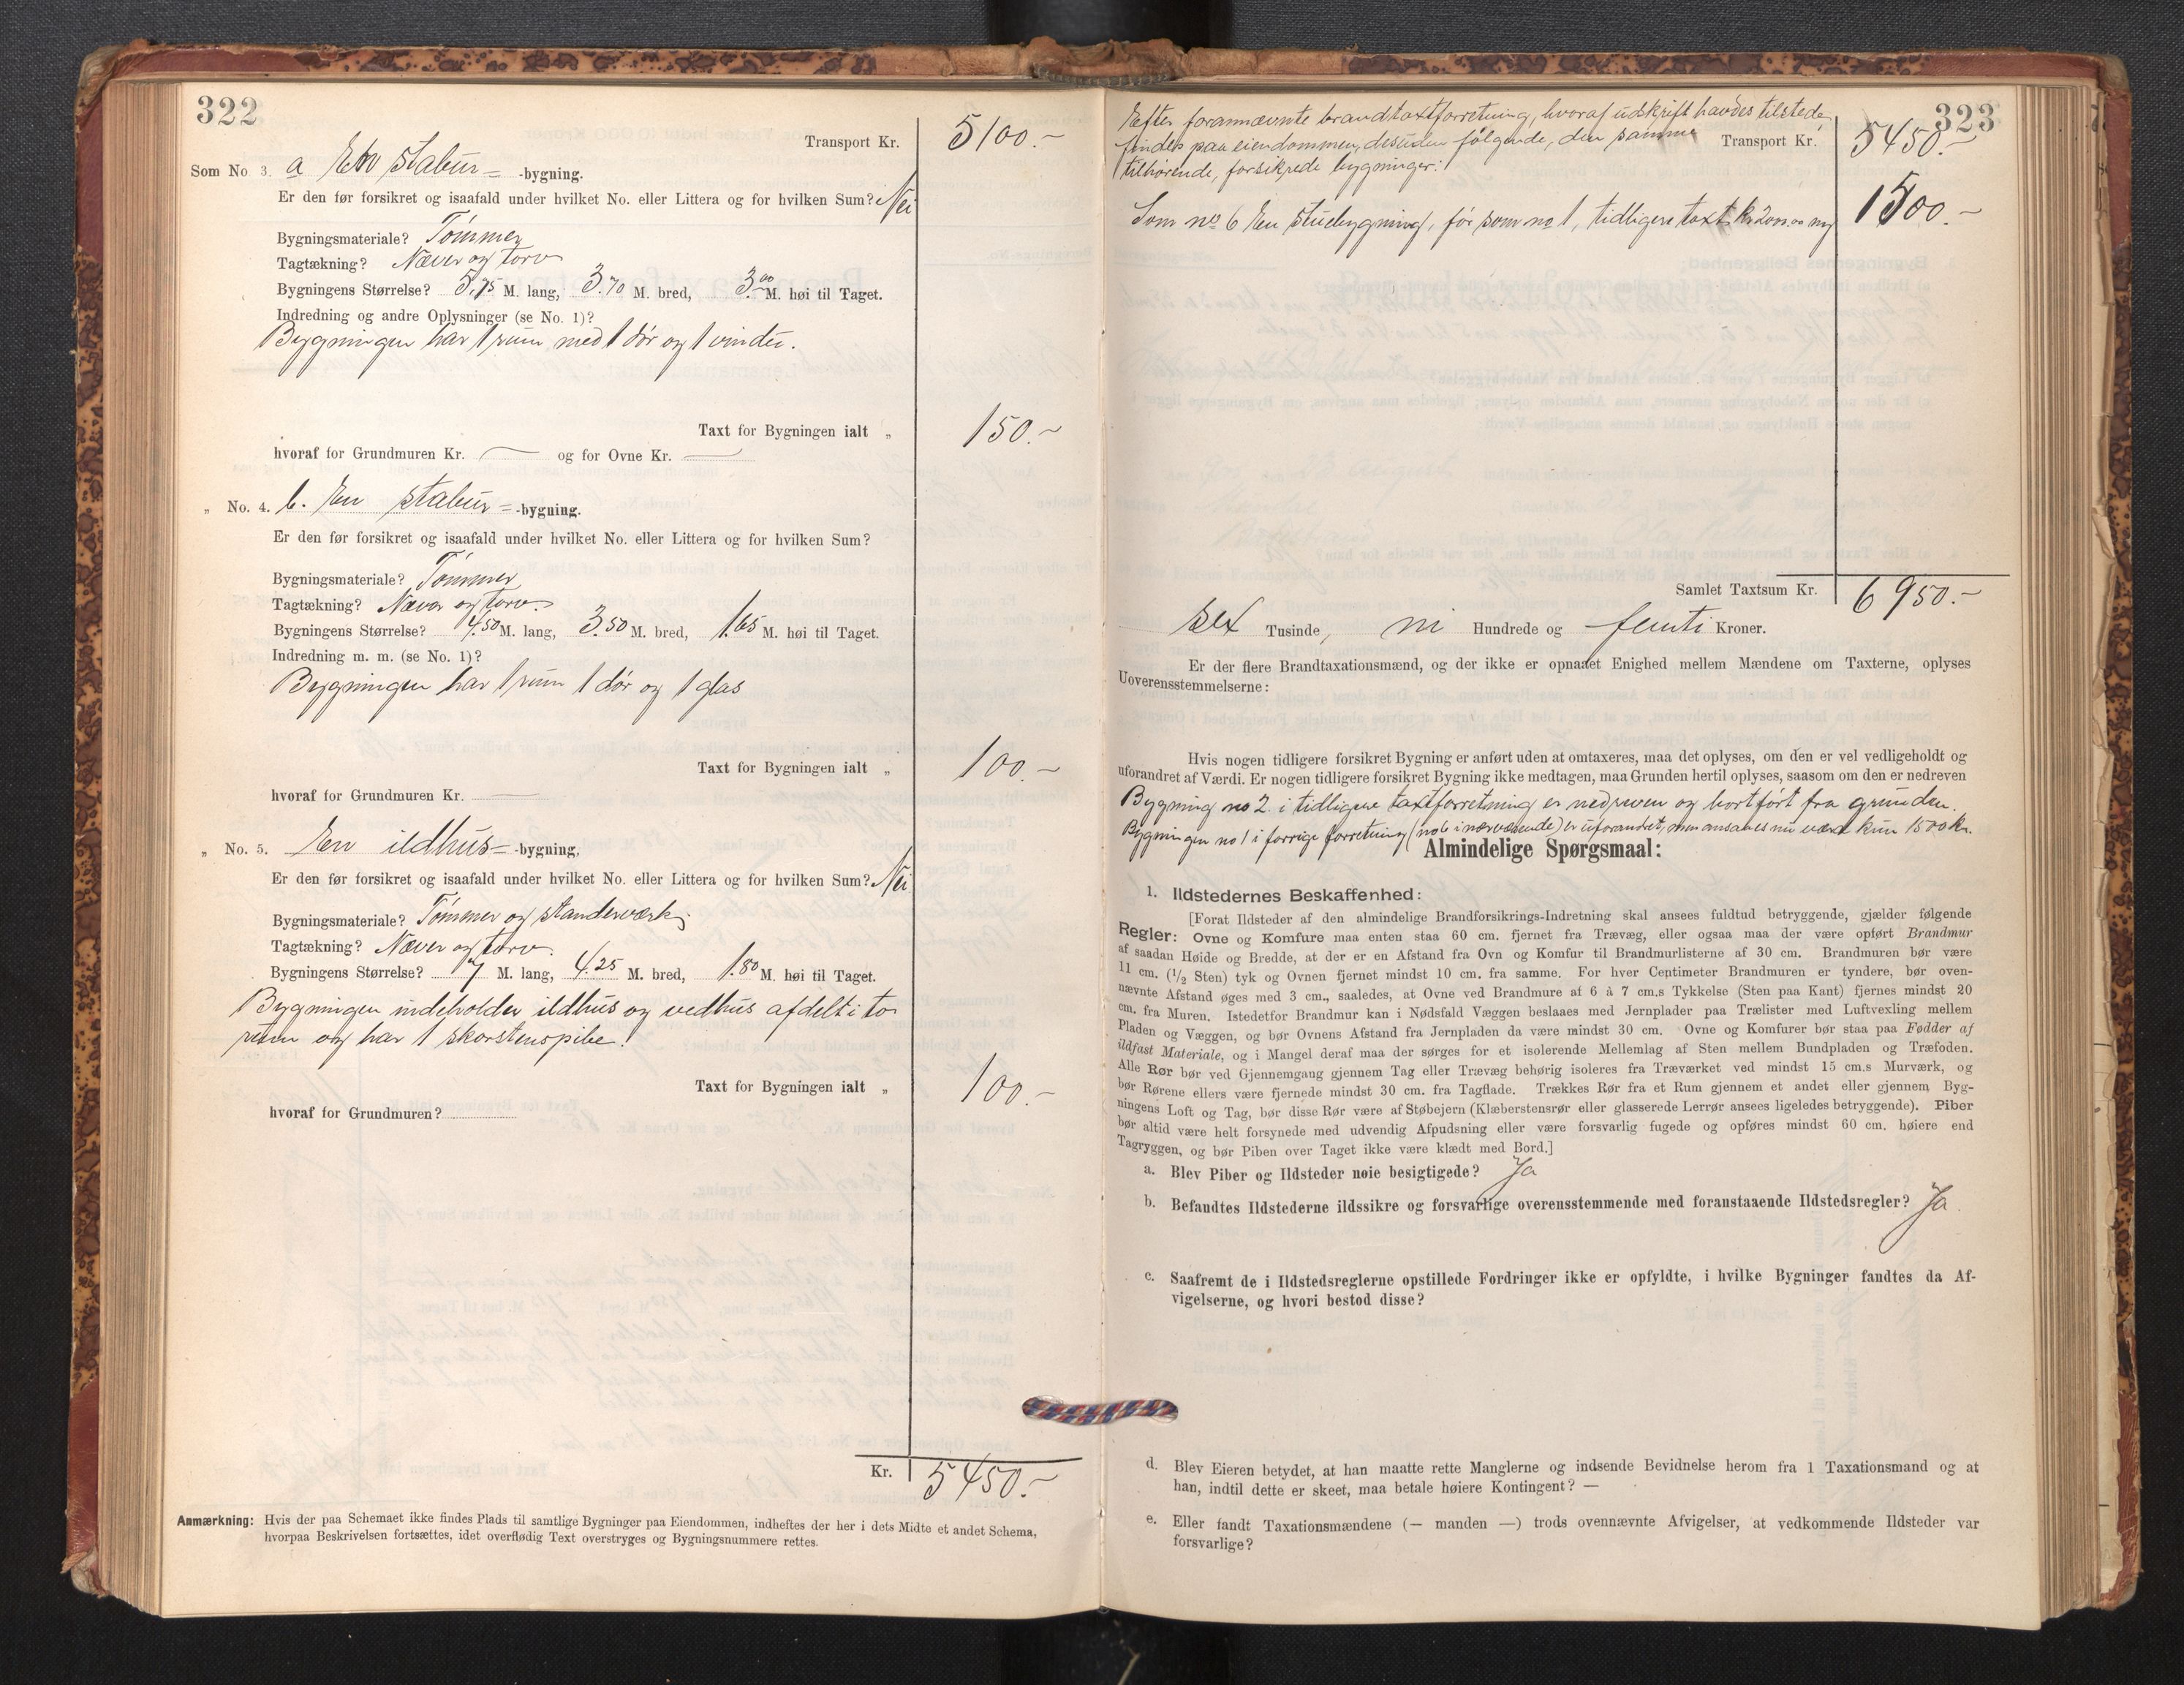 322
Transport Kr. 5100.-
Som No 3. a En stabur= -bygning.
Er den før forsikret og isaafald under hvilket No. eller Littera og for hvilken Sum? Nei
Bygningsmateriale? Tømmer
Tagtækning? Næver og torv
Bygningens Størrelse? 5.75 M. lang, 3.70 M. bred, 3.00 M. høi til Taget.
Indredning og andre Oplysninger (se No. 1)?
Bygningen har 1 rum med 1 dør og 1 vindu.
Taxt for Bygningen ialt „ 150.-
hvoraf for Grundmuren Kr. — og for Ovne Kr. —
„ No. 4. b. En stabur= -bygning.
Er den før forsikret og isaafald under hvilket No. eller Littera og for hvilken Sum?
Bygningsmateriale? Tømmer
Tagtækning? Næver og torv.
Bygningens Størrelse? 4.50 M. lang, 3.50 M. bred, 1.65 M. høi til Taget.
Indredning m. m. (se No. 1)?
Bygningen har 1 rum 1 dør og 1 glas
Taxt for Bygningen ialt „ 100.-
hvoraf for Grundmuren Kr. —
„ No. 5. En ildhus= -bygning,
Er den før forsikret og isaafald under hvilket No. eller Littera og for hvilken Sum? Nei
Bygningsmateriale? Tømmer og standerværk
Tagtækning? Næver og torv.
Bygningens Størrelse? 7 M. lang, 4.25 M. bred, 1.80 M. høi til Taget.
Bygningen indeholder ildhus og vedhus afdelt i to
rum og har 1 skorstenspibe.
Taxt for Bygningen ialt „ 100.-
hvoraf for Grundmuren?
Kr. 5450.-
Anmærkning: Hvis der paa Schemaet ikke findes Plads til samtlige Bygninger paa Eiendommen, indheftes der her i dets Midte et andet Schema,
hvorpaa Beskrivelsen fortsættes, idet overflødig Text overstryges og Bygningsnummere rettes.
323
Efter forannævnte brandtaxtforretning, hvoraf udskrift havdes tilstede,
findes paa eiendommen, desuden følgende, den samme Transport Kr. 5450.-
tilhørende, forsikrede bygninger:
Som no 6 En stuebygning, før som no 1, tidligere taxt kr 2000.00 nu 1500.-
Samlet Taxtsum Kr. 6950.-
sex Tusinde, ni Hundrede og femti Kroner.
Er der flere Brandtaxationsmænd, og der ikke er opnaaet Enighed mellem Mændene om Taxterne, oplyses
Uoverensstemmelserne:
Hvis nogen tidligere forsikret Bygning er anført uden at omtaxeres, maa det oplyses, om den er vel vedligeholdt og
uforandret af Værdi. Er nogen tidligere forsikret Bygning ikke medtagen, maa Grunden hertil oplyses, saasom om den er nedreven
Bygning no 2. i tidligere taxtforretning er nedreven og bortført fra grunden.
Bygningen no 1 i forrige forretning (no 6 i nærværende) er uforandret, men ansaaes nu værd kun 1500 kr.
Almindelige Spørgsmaal:
1. Ildstedernes Beskaffenhed:
[Forat Ildsteder af den almindelige Brandforsikrings-Indretning skal ansees fuldtud betryggende, gjælder følgende
Regler: Ovne og Komfure maa enten staa 60 cm. fjernet fra Trævæg, eller ogsaa maa der være opført Brandmur
af saadan Høide og Bredde, at der er en Afstand fra Ovn og Komfur til Brandmurlisterne af 30 cm. Brandmuren bør være
11 cm. (1/2 Sten) tyk og Ovnen fjernet mindst 10 cm. fra samme. For hver Centimeter Brandmuren er tyndere, bør oven-
nævnte Afstand øges med 3 cm., saaledes, at Ovne ved Brandmure af 6 à 7 cm.s Tykkelse (Sten paa Kant) fjernes mindst 20
cm. fra Muren. Istedetfor Brandmur kan i Nødsfald Væggen beslaaes med Jernplader paa Trælister med Luftvexling mellem
Pladen og Væggen, og bør Ovnens Afstand fra Jernpladen da være mindst 30 cm. Ovne og Komfurer bør staa paa Fødder af
ildfast Materiale, og i Mangel deraf maa der sørges for et isolerende Mellemlag af Sten mellem Bundpladen og Træfoden.
Alle Rør bør ved Gjennemgang gjennem Tag eller Trævæg behørig isoleres fra Træværket ved mindst 15 cm.s Murværk, og
bør Rørene ellers være fjernede mindst 30 cm. fra Tagflade. Trækkes Rør fra et Rum gjennem et andet eller gjennem Byg-
ningens Loft og Tag, bør disse Rør være af Støbejern (Klæberstensrør eller glasserede Lerrør ansees ligeledes betryggende). Piber
bør altid være helt forsynede med udvendig Afpudsning eller være forsvarlig fugede og opføres mindst 60 cm. høiere end
Tagryggen, og bør Piben over Taget ikke være klædt med Bord.]
a. Blev Piber og Ildsteder nøie besigtigede? Ja
b. Befandtes Ildstederne ildssikre og forsvarlige overensstemmende med foranstaaende Ildstedsregler? Ja.
c. Saafremt de i Ildstedsreglerne opstillede Fordringer ikke er opfyldte, i hvilke Bygninger fandtes da Af-
vigelserne, og hvori bestod disse?
d. Blev Eieren betydet, at han maatte rette Manglerne og indsende Bevidnelse herom fra 1 Taxationsmand og at
han, indtil dette er skeet, maa betale høiere Kontingent? —
e. Eller fandt Taxationsmændene (— manden —) trods ovennævnte Afvigelser, at vedkommende Ildsteder var
forsvarlige?